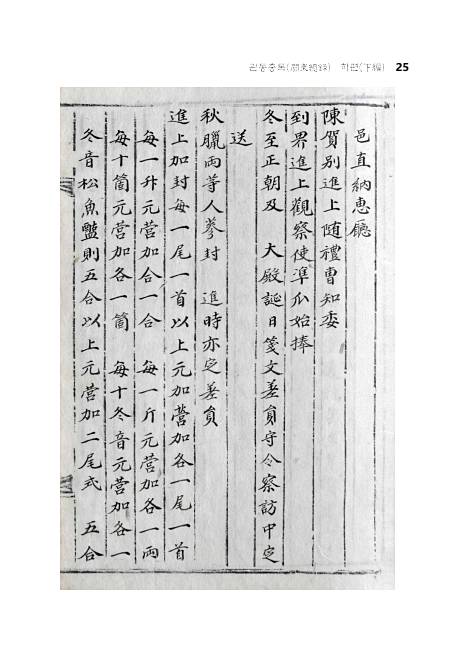 관동총록(關東總錄) 하편(下編) 25
邑直納惠廳
陳賀別進上随禮曺知委
到界進上觀察使準瓜始捧
冬至正朝及 大殿誕日箋文差負守令察訪中定
送
秋臘兩等人蔘封 進時亦定差負
進上加封每一尾一首以上元加營加各一尾一首
每一升元营加合一合 每一斤元营加各一兩
每十箇元営加各一箇 每十冬音元营加各一
冬音松魚醢則五合以上元营加二尾式 五合